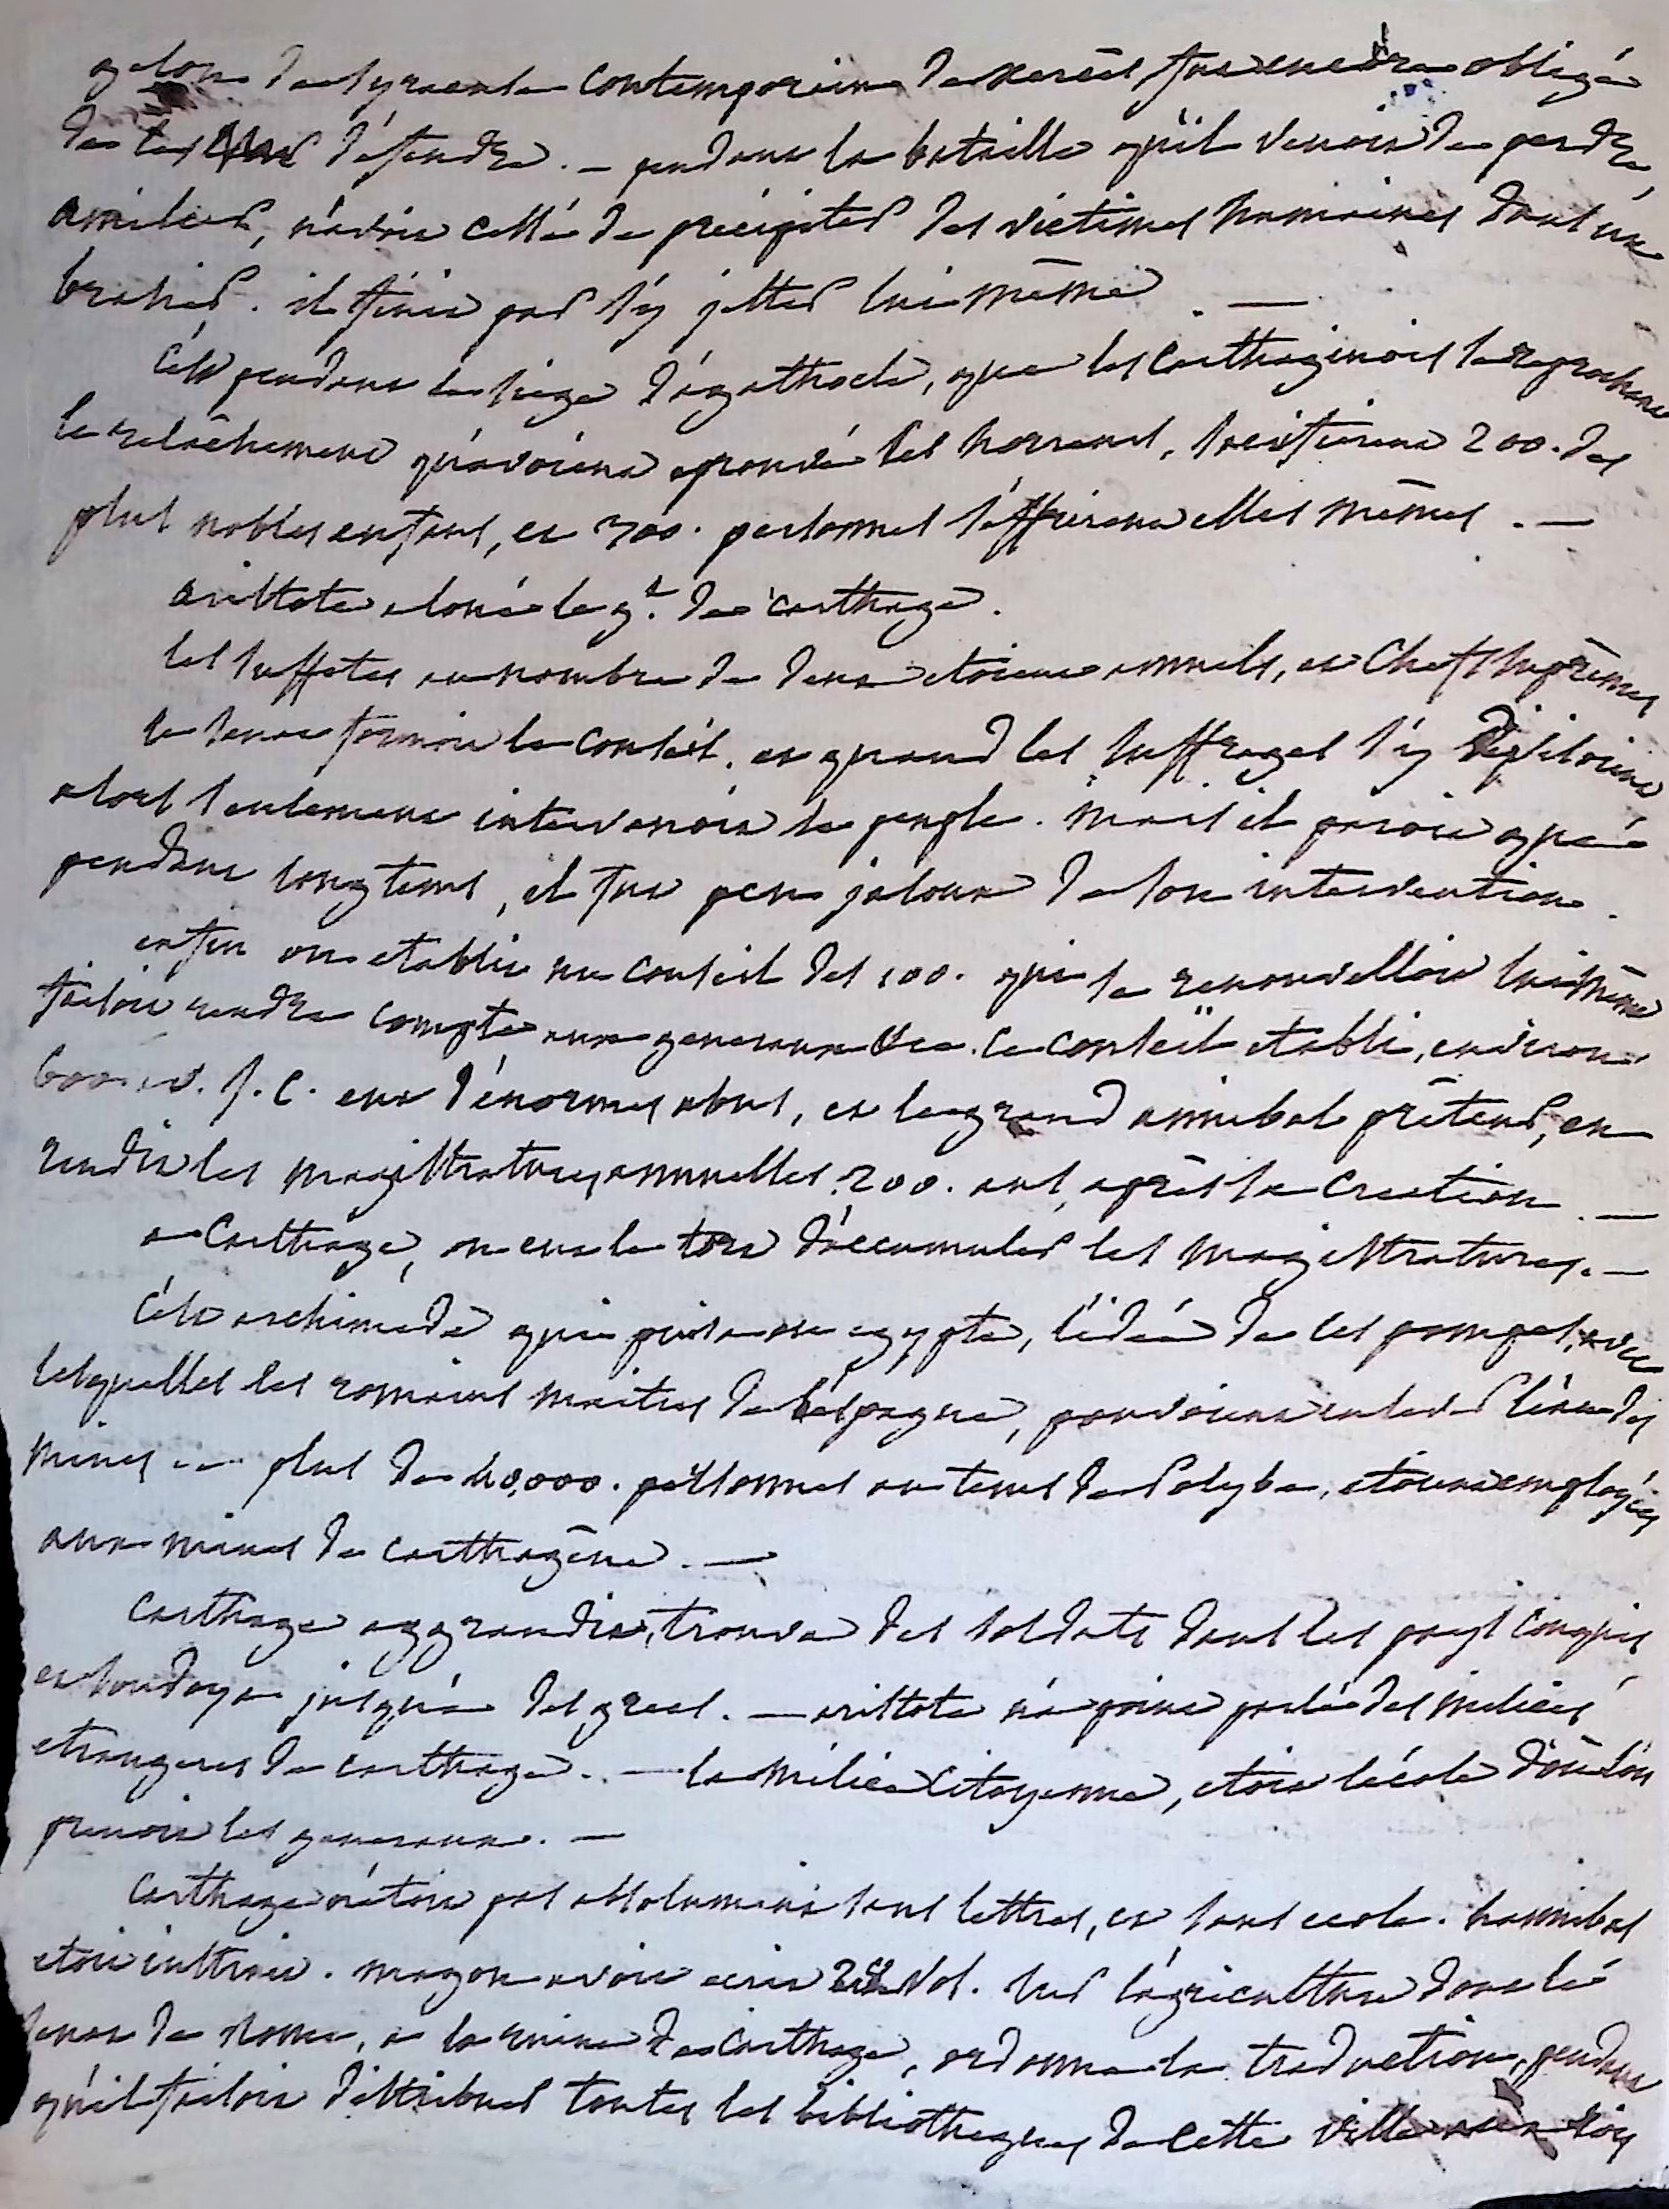 gelon de syracuse contemporain de xercès fut encore obligé
de les défendre. — pendant la bataille qu'il venoit de perdre,
amilcar, n'avoit cessé de précipiter des victimes humaines dans un
brasier. il finit par s'y jetter lui même. —
c'est pendant le siege d'agathocle, que les Carthaginois se reprochant
le relâchement qu'avoient eprouvé ses horreurs, sacrifierent 200. des
plus nobles enfans, et 300. personnes s'offrirent elles mêmes. —
aristote a loué le gt. de carthage.
les suffetes au nombre de deux etoient annuels, et Chefs suprêmes
le senat formoit le conseil. et quand les suffrages s'y divisoient
alors seulement intervenoit le peuple. mais il paroit que
pendant longtems, il fut peu jaloux de son intervention.
enfin on etablit un conseil des 100. qui se renouvelloit lui même
faisoit rendre compte aux generaux &c. ce conseil etabli, environ
600. av. J. C. eut d'énormes abus, et le grand annibal préteur, en
rendit les magistratures annuelles. 200. ans, après sa creation. —
a Carthage, on eut le tort d'accumuler les magistratures. —
c'est archimede qui puisa en egypte, l'idée de ces pompes, avec
lesquelles les romains maitres de l'espagne, pouvoient enlever l'eau des
mines — plus de 40,000. personnes au tems de Polybe, etoient employées
aux mines de carthagêne. —
Carthage aggrandie, trouva des soldats dans les pays conquis
et soudoya jusqu'à des grecs. — aristote n'a point parlé des milices
etrangeres de carthage. — la milice Citoyenne, etoit l'école d'où l'on
prenoit les generaux. —
Carthage n'étoit pas absolument sans lettres, et sans ecole. hannibal
etoit instruit. magon avoit ecrit vol. sur l'agriculture dont le
senat de Rome, a la ruine de Carthage, ordonna la traduction, pendant
qu'il faisoit distribuer toutes les bibliotheques de cette ville aux rois